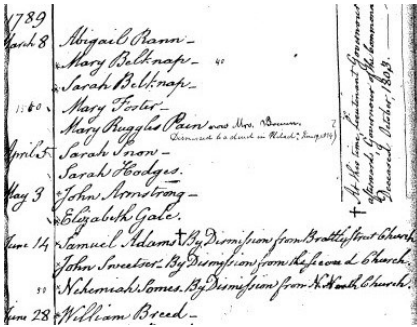 1789
March 8 Abigail Rann -
Mary Belknap - 40
Sarah Belknap -
Mary Foster -
Mary Ruggles Pain now Mrs.
Dismissed to a church in
April 5 Sarah Snon -
Sarah Hodges.
May 3 *John Armstrong -
*Elizabeth Gale.
June 14 *Samuel Adams † By Dismission from Brattle Street Church
*John Sweetser - By Dismission from the second Church.
50 *Nehemiah Somes. By Dismission from N. North Church
June 28 *William Breed -
† At this time, Lieutenant Governour
afterwards Governour of the Commonw
Deceased October, 1803.